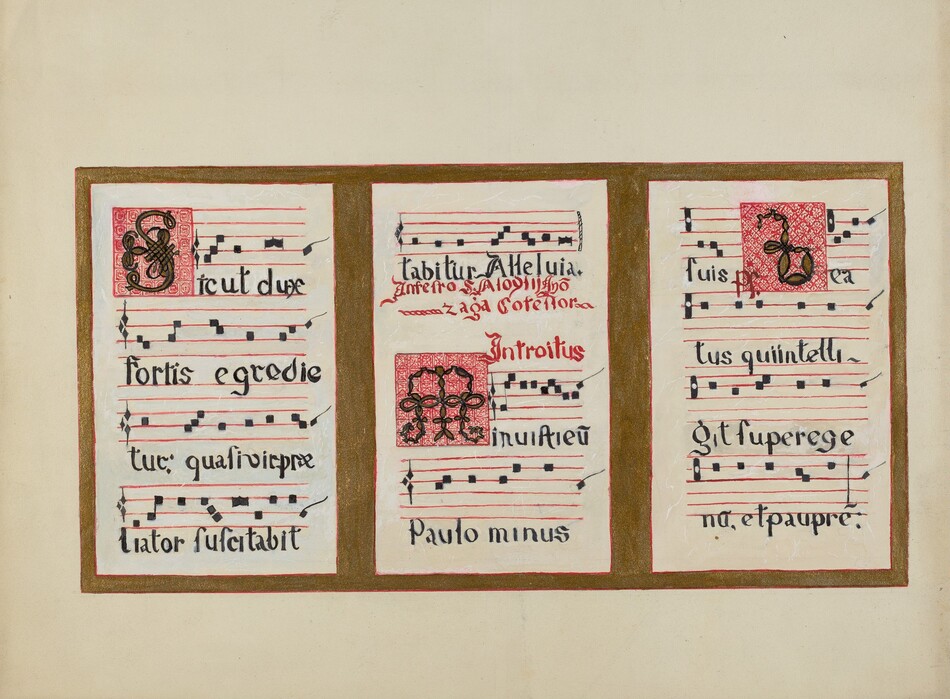 Sicut dux
fortis egredie
tur: quasi vir præ
liator suscitabit
tabitur, Alleluia.
In festo S. Aloiisij Gō
zaga Cofessor
Introitus
Minuisti eū
Paulo minus
suis ps. Bea
tus qui intelli~
git super ege
nū, et pauprē: